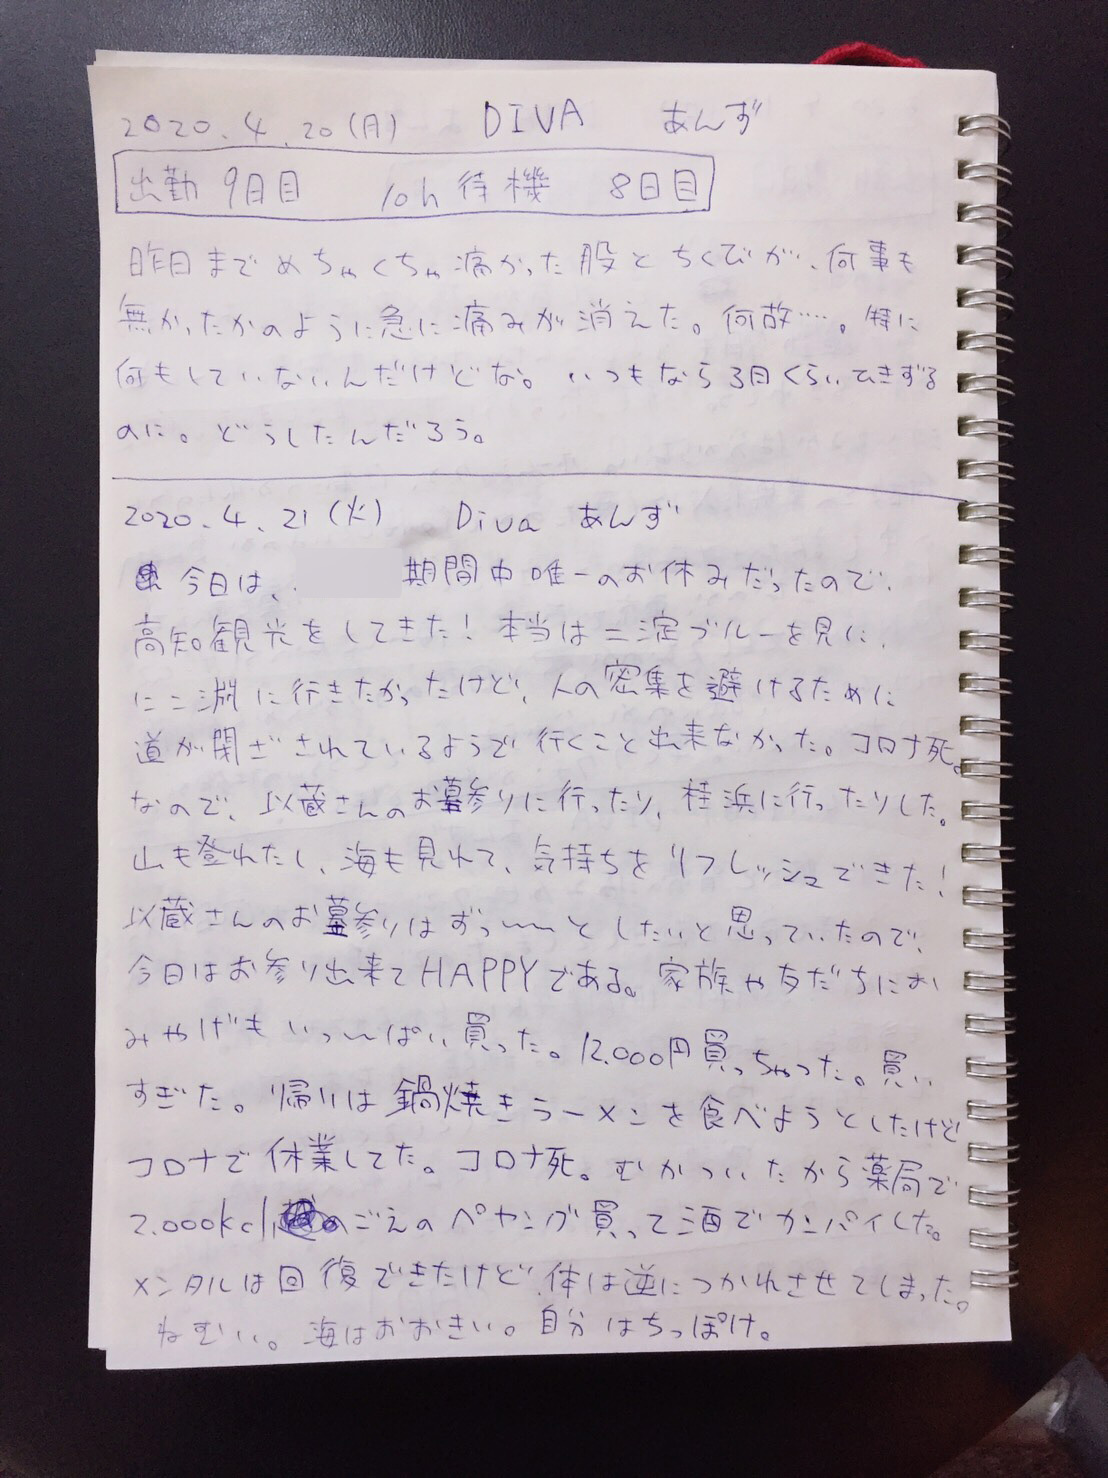 2020.4.20(月) DIVA あんず
出勤 9日目 10h 待機 8日目
昨日までめちゃくちゃ痛かった股とちくびが、何事も
無かったかのように急に痛みが消えた。何故……。特に
何もしていないんだけどな。いつもなら3日くらいひきずる
のに。どうしたんだろう。
2020.4.21(火) Diva あんず
今日は、 期間中唯一のお休みだったので、
高知観光をしてきた!本当は二淀ブルーを見に、
にこ淵に行きたかったけど、人の密集を避けるために
道が閉ざされているようで行くこと出来なかった。コロナ死。
なので、以蔵さんのお墓参りに行ったり、桂浜に行ったりした。
山も登れたし、海も見れて、気持ちをリフレッシュできた!
以蔵さんのお墓参りはずっ〜〜としたいと思っていたので、
今日はお参り出来てHAPPYである。家族や友だちにお
みやげもいっ〜ぱい買った。12.000円買っちゃった。買い
すぎた。帰りは鍋焼きラーメンを食べようとしたけど
コロナで休業してた。コロナ死。むかついたから薬局で
2.000kcl ごえのペヤング買って酒でカンパイした。
メンタルは回復できたけど、体は逆につかれさせてしまった。
ねむい。海はおおきい。自分はちっぽけ。